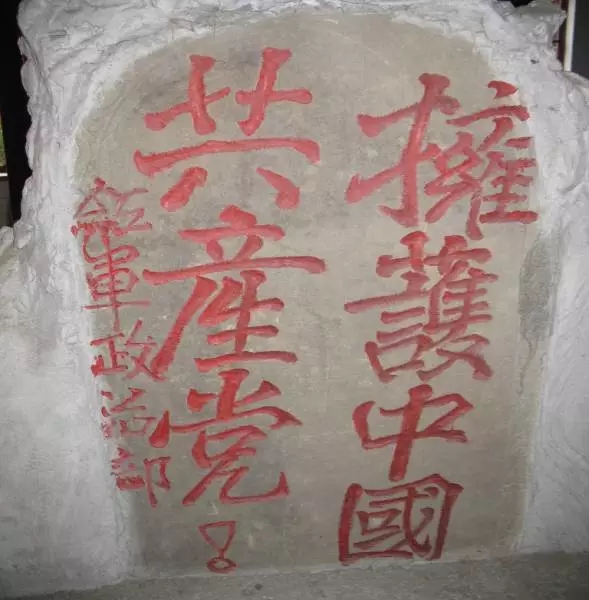 擁護中國
共産党！
紅軍政治部